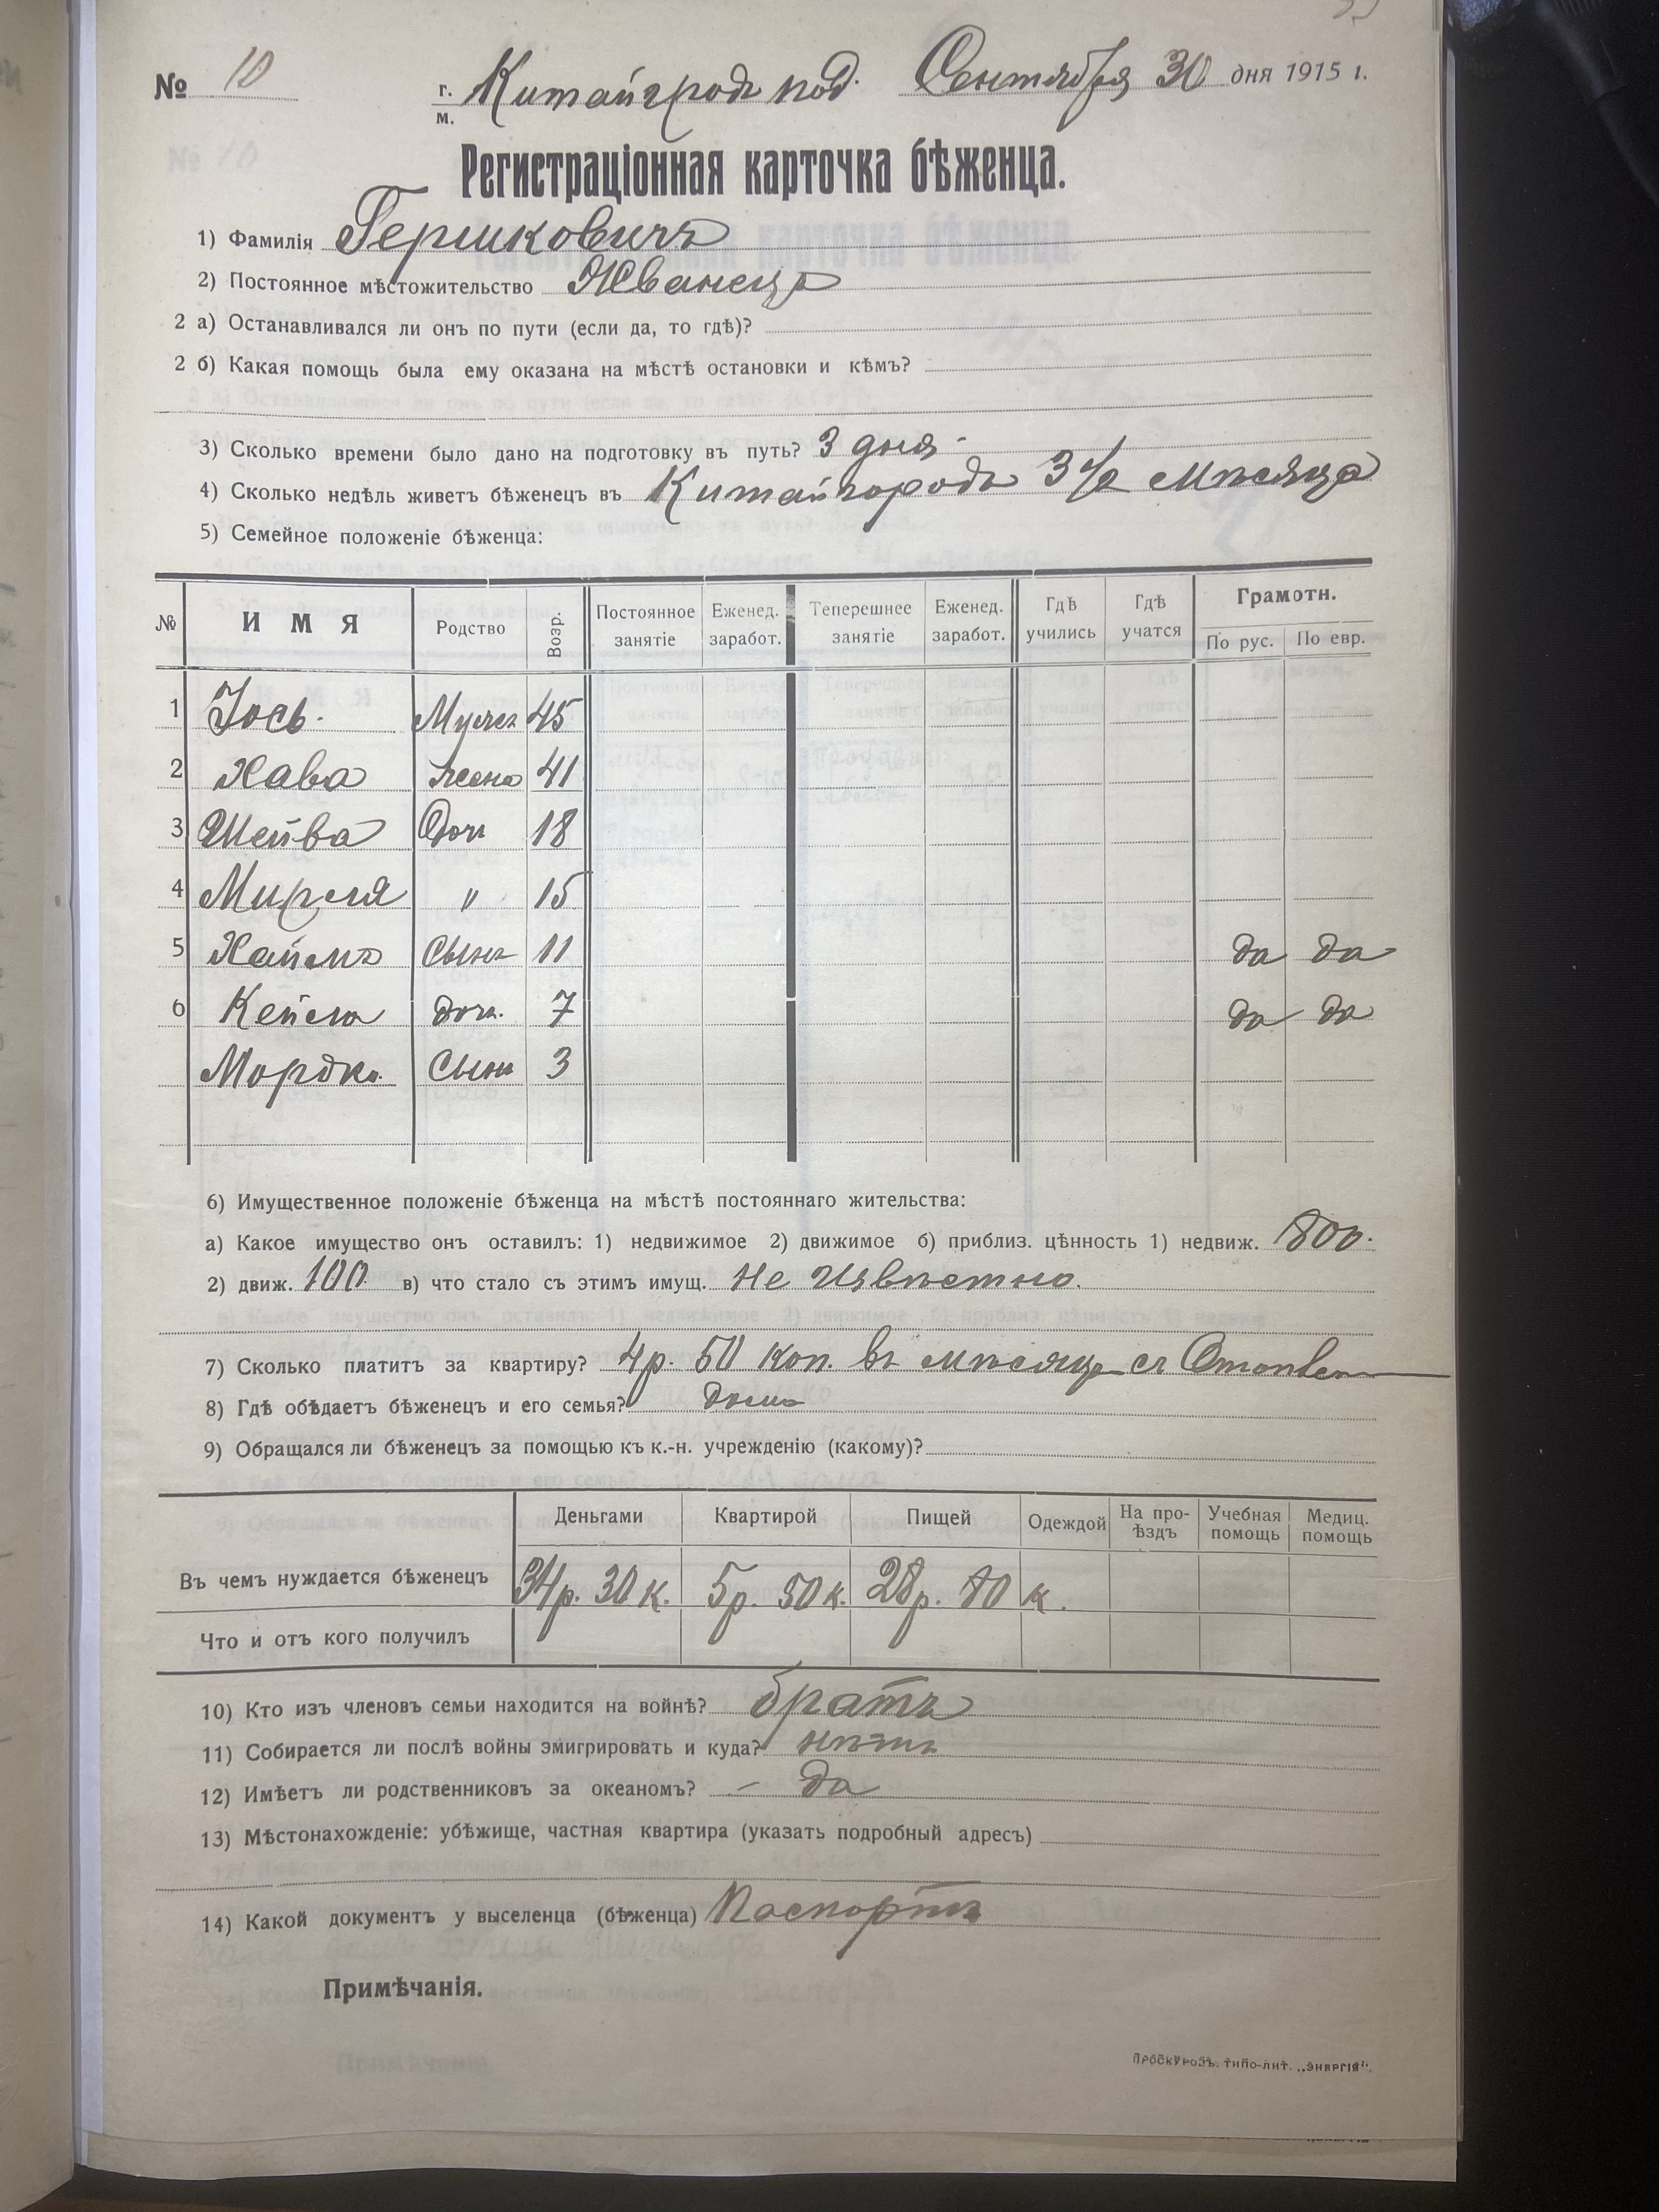 № 10 г. м. Китайгродъ под. Сентября 30 дня 1915 г.
Регистраціонная карточка бѣженца.
1) Фамилія Гершковичъ
2) Постоянное мѣстожительство Жванецъ
2 а) Останавливался ли онъ по пути (если да, то гдѣ)?
2 б) Какая помощь была ему оказана на мѣстѣ остановки и кѣмъ?
3) Сколько времени было дано на подготовку въ путь? 3 дня -
4) Сколько недѣль живетъ бѣженецъ въ Китайгородѣ 3 1/2 мѣсяца
5) Семейное положеніе бѣженца:
№ ИМЯ Родство Возр. Постоянное занятіе Еженед. заработ. Теперешнее занятіе Еженед. заработ. Гдѣ учились Гдѣ учатся Грамотн. По рус. По евр.
1 Іось. Мужъ 45
2 Хава жена 41
3 Шейва Доч 18
4 Мирля " 15
5 Хаимъ Сынъ 11 да да
6 Кейла доч. 7 да да
Мордко. Сынъ 3
6) Имущественное положеніе бѣженца на мѣстѣ постояннаго жительства:
а) Какое имущество онъ оставилъ: 1) недвижимое 2) движимое б) приблиз. цѣнность 1) недвиж. 800.
2) движ. 100 в) что стало съ этимъ имущ. Не извѣстно.
7) Сколько платитъ за квартиру? 4 р. 50 коп. въ мѣсяцъ съ
8) Гдѣ обѣдаетъ бѣженецъ и его семья? дома
9) Обращался ли бѣженецъ за помощью къ к.-н. учрежденію (какому)?
Деньгами Квартирой Пищей Одеждой На проѣздъ Учебная помощь Медиц. помощь
Въ чемъ нуждается бѣженецъ 34 р. 30 к. 5 р. 50 к. 28 р. 80 к.
Что и отъ кого получилъ
10) Кто изъ членовъ семьи находится на войнѣ? братъ
11) Собирается ли послѣ войны эмигрировать и куда? нѣтъ
12) Имѣетъ ли родственниковъ за океаномъ? - да
13) Мѣстонахожденіе: убѣжище, частная квартира (указать подробный адресъ)
14) Какой документъ у выселенца (бѣженца) Паспортъ
Примѣчанія.
Проскуровъ. типо-лит. „Энергія".